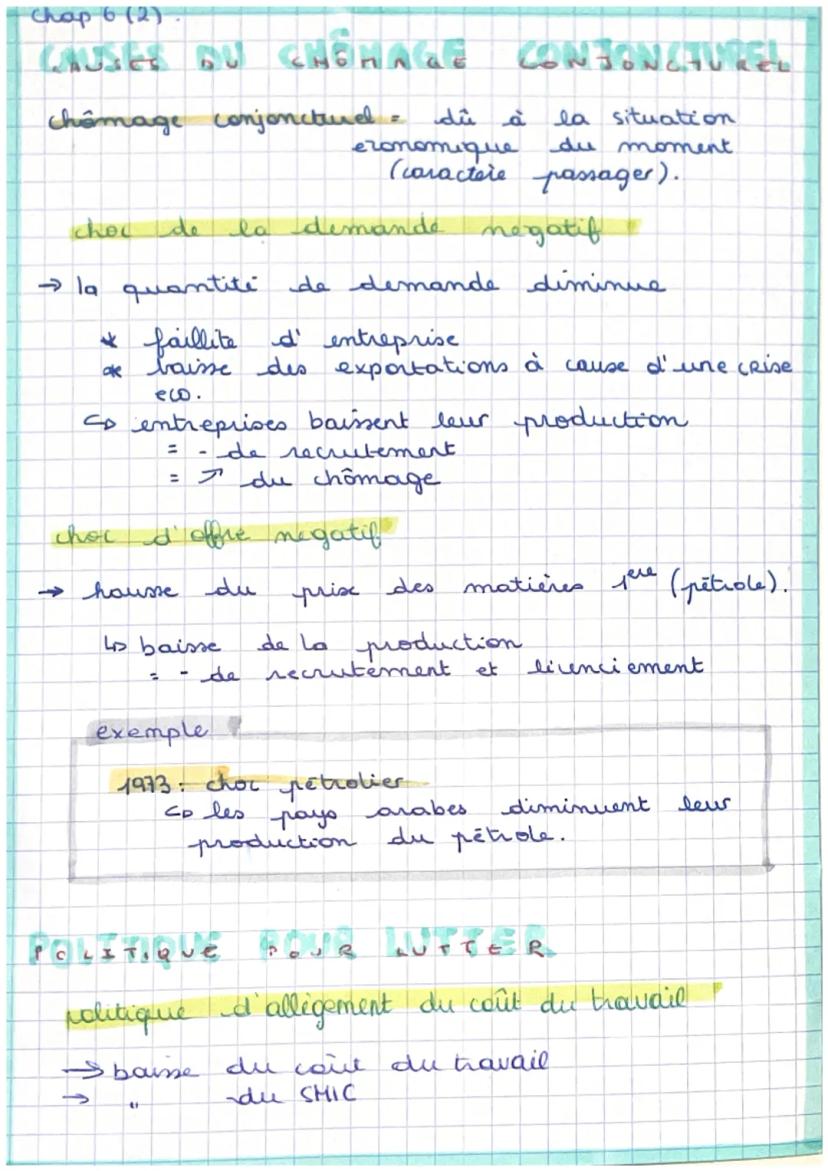 Chap 6 (2).
CAUSES DU CHÔMAGE CONJONCTUREL
chômage conjonctuel = dû à la situation
economique du moment
(caractère passager).
choc de la demande negatif
→ la quantité de demande diminue
* faillite d' entreprise
* baisse des exportations à cause d'une crise
eco.
↳ entreprises baissent leur production
= - de recrutement
= ↗ du chômage
choc d'offre negatif
→ hausse du prix des matières 1ere (pétrole).
↳ baisse de la production
= - de recrutement et licenciement
exemple
1973 : choc pétrolier
↳ les pays arabes diminuent leur
production du pétrole.
POLITIQUE POUR LUTTER
politique d'allégement du coût du travail
→ baisse du coût du travail
→ " du SMIC